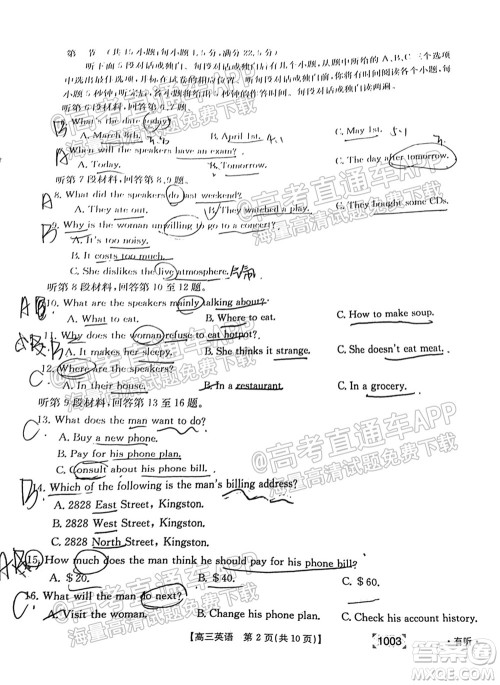 第 节(共15小题;每小题1.5分,满分22.5分)
听下面5段对话或独白。每段对话或独白后有几个小题,从题中所给的A、B、C三个选项
听第6段材料,回答第6、7题。
B 6. What's the date today?
A. March 8th. B. April 1st. 4.1 C. May 1st. 5.1
B 7. When will the speakers have an exam?
A. Today. B. Tomorrow. C. The day after tomorrow.
听第7段材料,回答第8、9题。
A 8. What did the speakers do last weekend?
A. They ate out. B. They watched a play. C. They bought some CDs.
9. Why is the woman unwilling to go to a concert?
A. It's too noisy.
B. It costs too much.
C. She dislikes the live atmosphere.
听第8段材料,回答第10至12题。
10. What are the speakers mainly talking about?
A. What to eat. B. Where to eat. C. How to make soup.
11. Why does the woman refuse to eat hotpot?
A. It makes her sleepy. B. She thinks it strange. C. She doesn't eat meat.
12. Where are the speakers?
A. In their house. B. In a restaurant. C. In a grocery.
听第9段材料,回答第13至16题。
C 13. What does the man want to do?
A. Buy a new phone.
B. Pay for his phone plan.
C. Consult about his phone bill.
B 14. Which of the following is the man's billing address?
A. 2828 East Street, Kingston.
B. 2828 West Street, Kingston.
C. 2828 North Street, Kingston.
15. How much does the man think he should pay for his phone bill?
A. $20. B. $40. C. $60.
C 16. What will the man do next?
A. Visit the woman. B. Change his phone plan. C. Check his account history.
【高三英语 第2页(共10页)】 1003 ·有听·
@高考直通车APP
海量高清试题免费下载
@高考直通车APP
海量高清试题免费下载
@高考直通车APP
海量高清试题免费下载